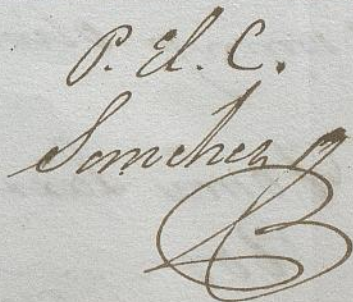 P. El. C.
Somchez